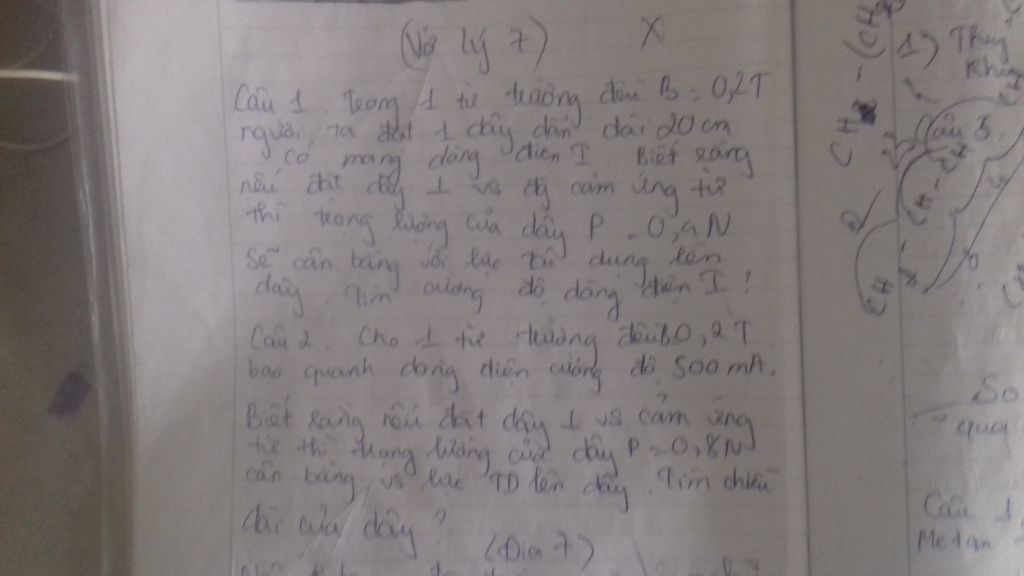 (Vở lý 7) X
Câu 1. Trong 1 từ trường đều B = 0,2T
người ta đặt 1 dây dẫn dài 20cm
có mang dòng điện I. Biết rằng
nếu đặt dây ⊥ vs độ cảm ứng từ
thì trọng lượng của dây P = 0,4N
Sẽ cân bằng với lực tác dụng lên
dây. Tìm cường độ dòng điện I?
Câu 2. Cho 1 từ trường đều B 0,2T
bao quanh dòng điện cường độ 500mA.
Biết rằng nếu đặt dây ⊥ vs cảm ứng
từ thì trọng lượng của dây P = 0,8N
cân bằng vs lực TD lên dây. Tìm chiều
dài của dây?
(Địa 7)
CH - (CH
1) Thủy
Câu 3.
CH - CH
CH
So
qua
Câu 1
Metan